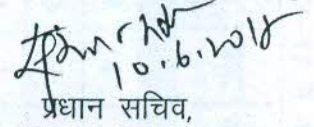 10.6.2018
प्रधान सचिव,